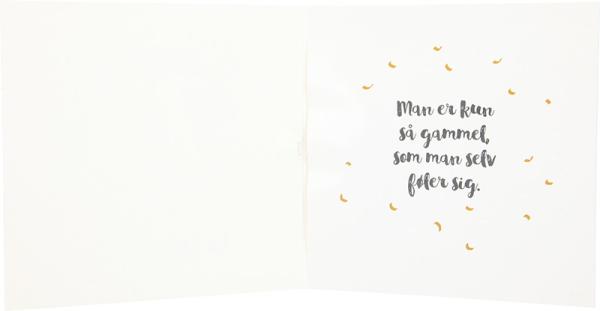 Man er kun
så gammel,
som man selv
føler sig.